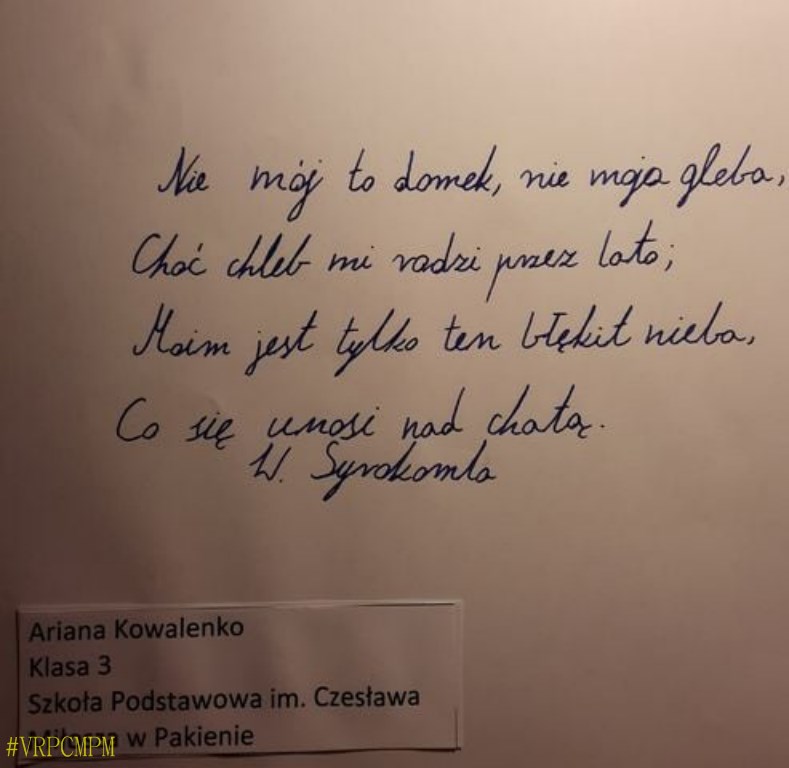 Nie mój to domek, nie moja gleba,
Choć chleb mi radzi przez lato;
Moim jest tylko ten błękit nieba,
Co się unosi nad chatą.
W. Syrokomla
Ariana Kowalenko
Klasa 3
Szkoła Podstawowa im. Czesława
w Pakienie
#VRPCMPM